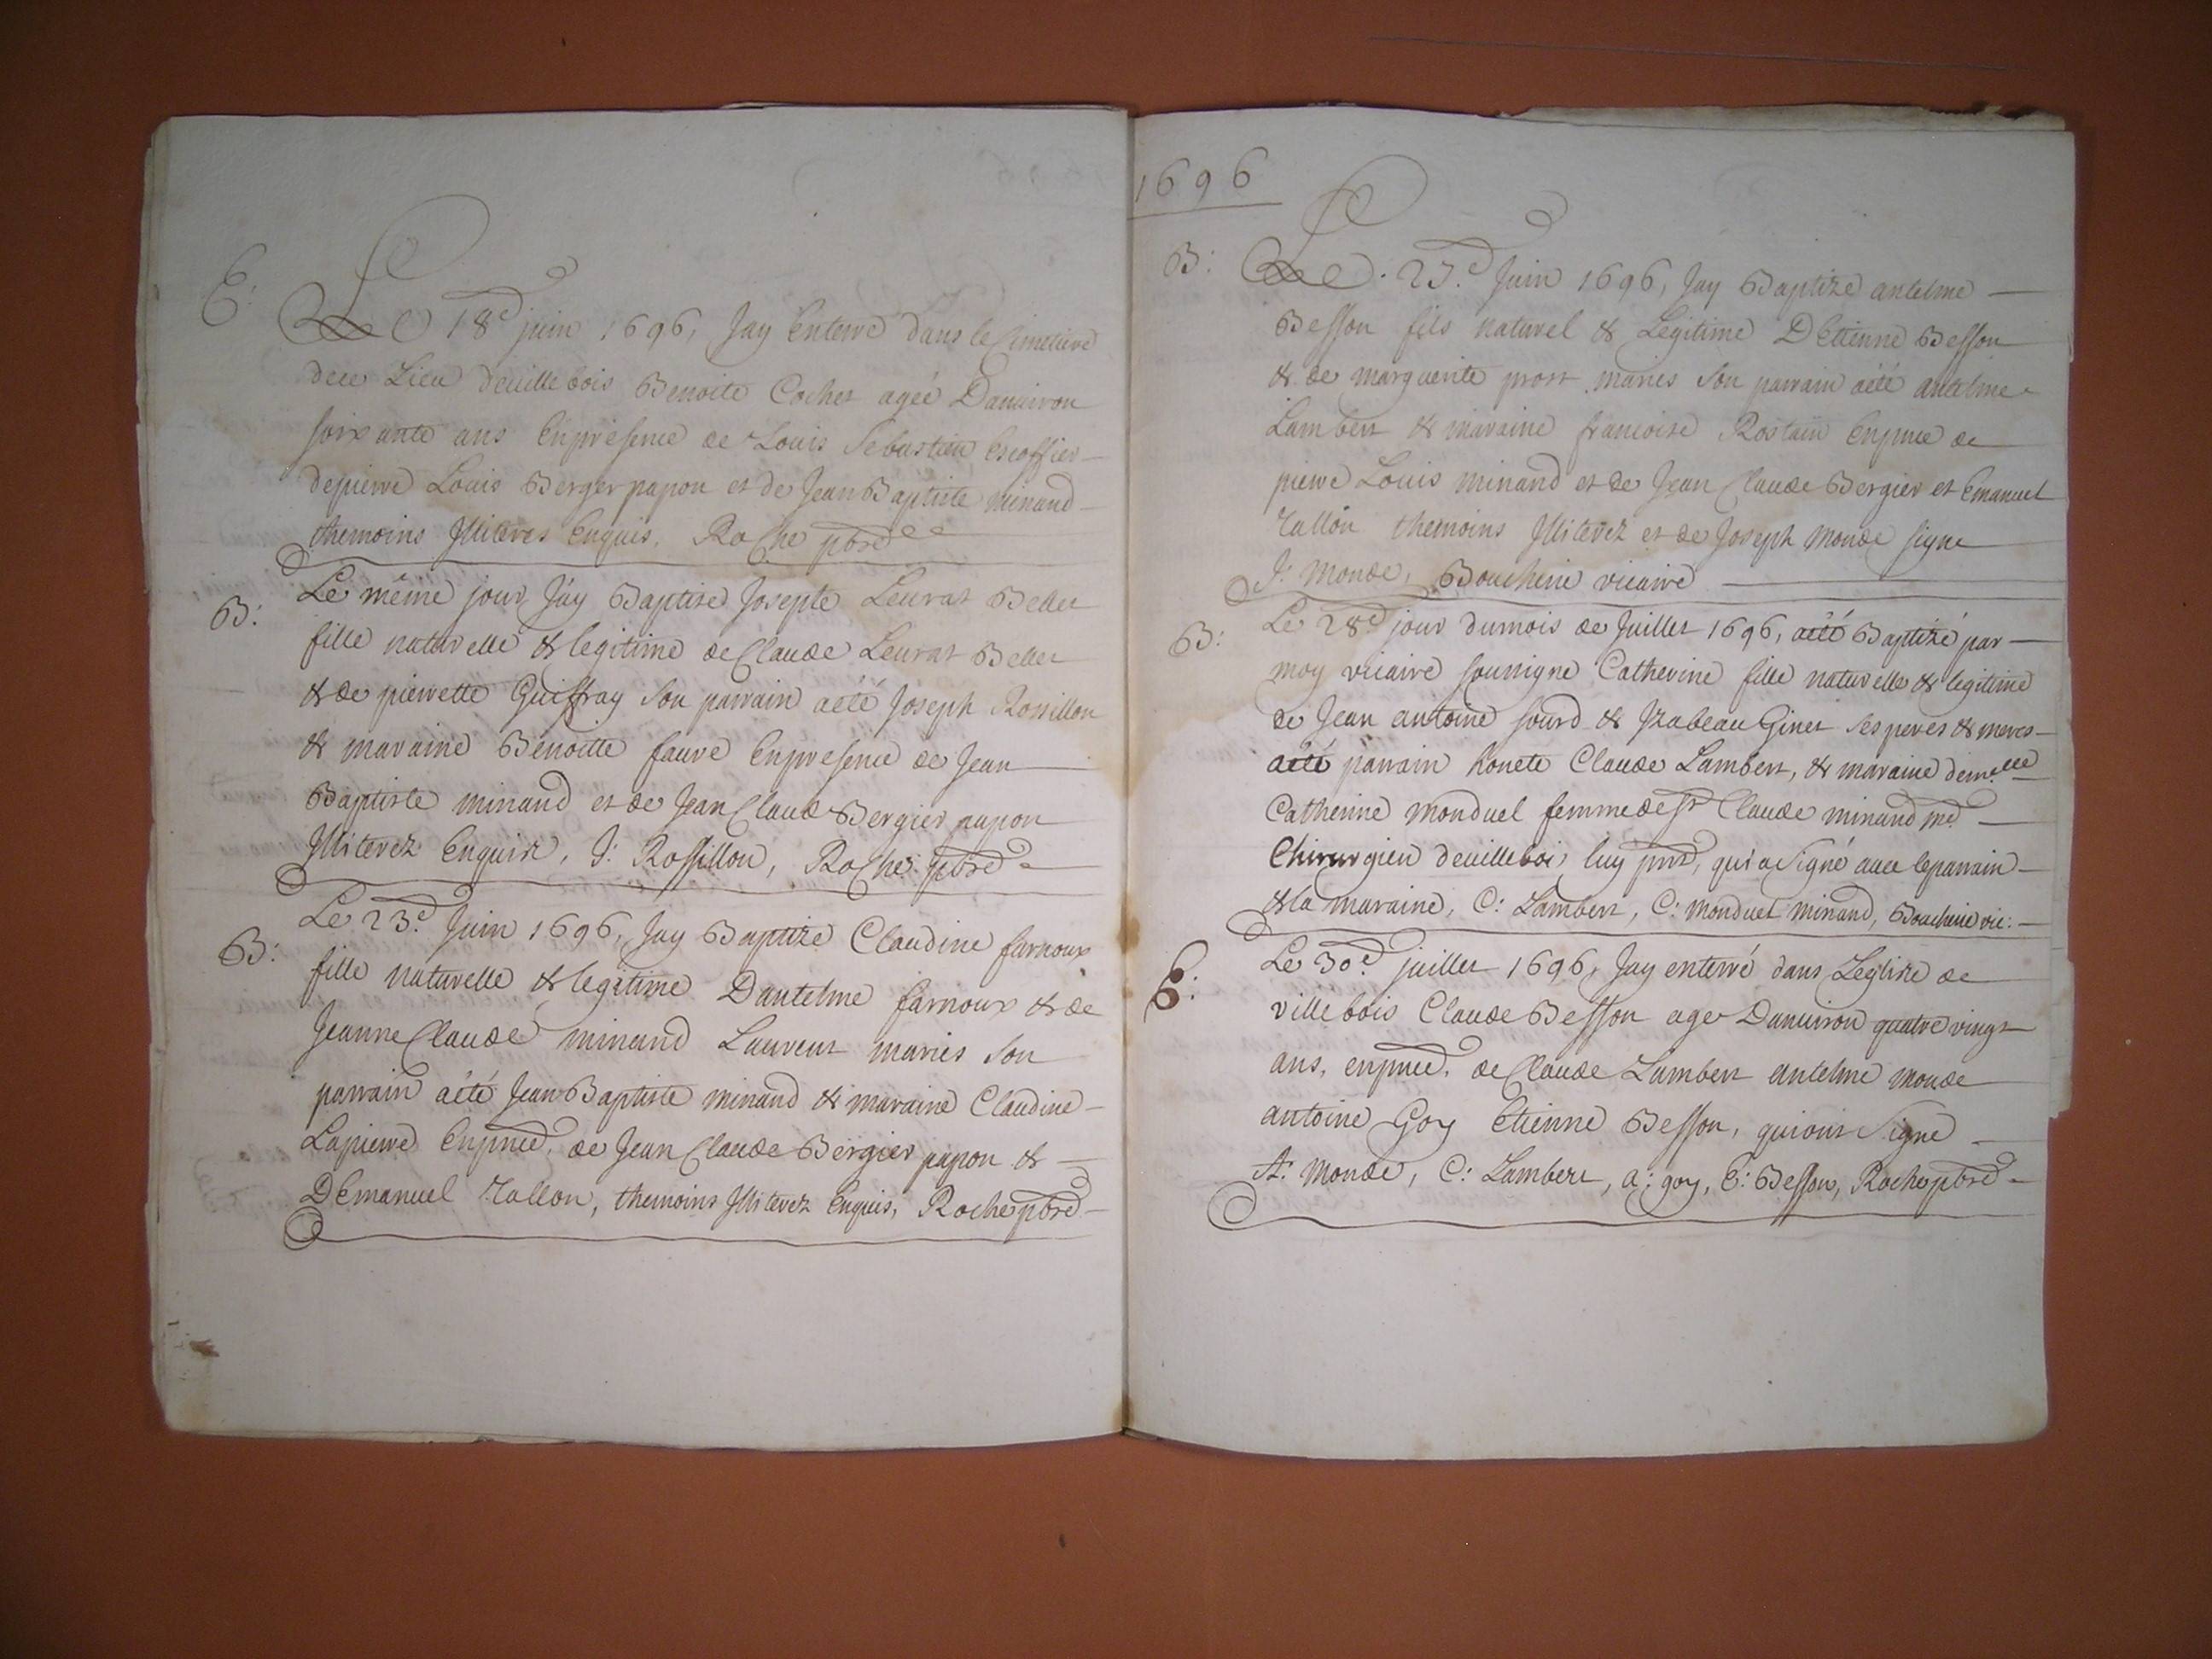 E:
Le 18e juin 1696, Jay Enterré dans le Cimetiere
dece Lieu deuillebois Benoite Cochet agée Danuiron
soixante ans Enpresence de Louis Sebastien Escoffier
depierre Louis Berger papon et de Jean Baptiste minand
themoins Jlliteres Enquis. Roche pbre
B:
Le même jour Jáy Baptisé Josepte Leurat Bellet
fille naturelle & legitime de Claude Leurat Bellet
& de pierrette Guiffray son parrain aété Joseph Rossillon
& maraine Benoitte faure Enpresence de Jean
Baptiste minand et de Jean Claude Bergier papon
Jlliterez Enquis, J: Rossillon, Roche pbre
B:
Le 23e Juin 1696, Jay Baptizé Claudine farnoux
fille naturelle & legitime Dantelme farnoux & de
Jeanne Claude minand Laurent mariés son
parrain aété Jean Baptiste minand & maraine Claudine
Lapierre Enpnce de Jean Claude Bergier papon &
DEmanuel Tallon, themoins Jlliterez Enquis, Roche pbre
1696
B:
Le 25e Juin 1696, Jay Baptizé antelme
Besson fils naturel & Legitime DEtienne Besson
& de marguerite prost mariés son parrain aété antelme
Lambert & maraine francoise Rostain Enpnce de
pierre Louis minand et de Jean Claude Bergier et Emanuel
Tallon themoins Jlliterez et de Joseph monde signe
J: Monde, Boucherie vicaire
B:
Le 28e jour dumois de Juillet 1696, aété Baptizé par
moy vicaire soussigne Catherine fille naturelle & legitime
de Jean antoine sourd & Jzabeau Ginet ses peres & meres
aété parrain honete Claude Lambert, & maraine demelle
Catherine monduel femme de sr Claude minand me
Chirurgien deuillebois, luy pnt, qui a signé auec leparrain
& la maraine, C: Lambert, C: monduel minand, Boucherie vic:
E:
Le 30e juillet 1696, Jay enterré dans Leglize de
villebois Claude Besson age Danuiron quatre vingt
ans, enpnce de Claude Lambert antelme monde
antoine Goy Etienne Besson, quiont Signe
A: Monde, C: Lambert, a: goy, E: Besson, Roche pbre